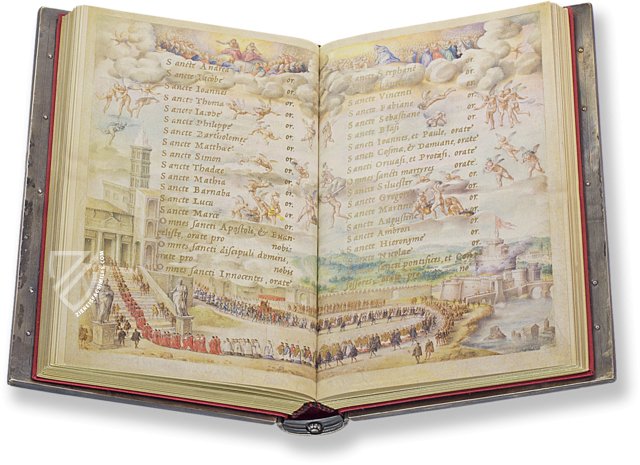 Sancte Andrea or.
Sancte Iacobe or.
Sancte Ioannes or.
Sancte Thoma or.
Sancte Iacobe or.
Sancte Philippe or.
Sancte Bartholomee or.
Sancte Matthae or.
Sancte Simon or.
Sancte Thadae or.
Sancte Mathia or.
Sancte Barnaba or.
Sancte Luca or.
Sancte Marce or.
Omnes sancti Apostoli, & Euan
gelistę, orate pro nobis
Omnes sancti discipuli domini,
orate pro nobis
Omnes sancti Innocentes, orate
Sancte Stephane or.
Sancte Vincenti or.
Sancte Fabiane or.
Sancte Sebastiane or.
Sancte Blasi or.
Sancti Ioannes, et Paule, orate
Sancti Cosma, & Damiane, orate
Sancti Geruasi, et Protasi, orate
Omnes sancti martyres orate
Sancte Siluester or.
Sancte Gregori or.
Sancte Martine or.
Sancte Augustine or.
Sancte Ambrosi or.
Sancte Hieronyme or.
Sancte Nicolae or.
Omnes sancti pontifices, et Conf
orate pro nobis
ZIEREIS FACSIMILES